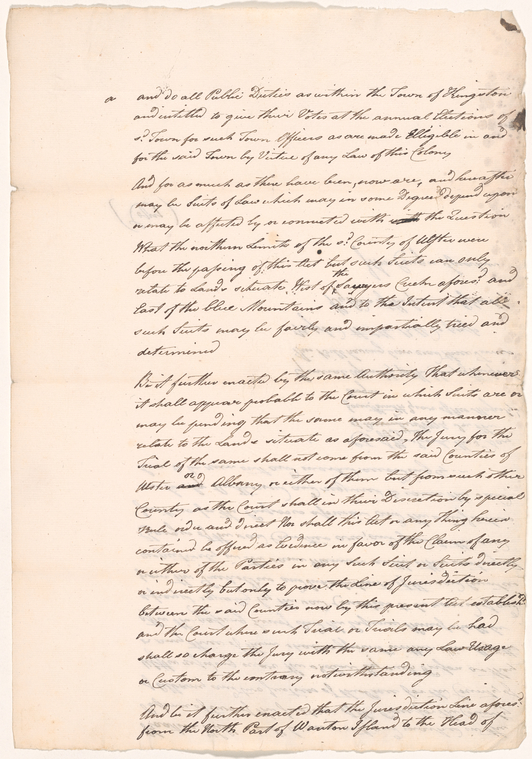 a and do all Public Duties as within the Town of Kingston
and intitled to give their Votes at the annual Elections of
sd. Town for such Town Officers as are made Eligible in and
for the said Town by Virtue of any Law of this Colony
And for as much as there have been, now are, and hereafter
may be Suits of Law which may in some Degree depend upon
or may be affected by or connected with the Question
What the northern Limits of the sd. County of Ulster were
before the passing of this Act but such Suits can only
relate to Lands situate West of the Sawyers Creek aforesd. and
East of the blue Mountains and to the Intent that all
such Suits may be fairly and impartially tried and
determined
Be it further enacted by the same Authority That whenever
it shall appear probable to the Court in which Suits are or
may be pending that the same may in any manner
relate to the Lands situate as aforesaid, the Jury for the
Trial of the same shall not come from the said Counties of
Ulster and or Albany or either of them but from such other
County as the Court shall in their Discretion by special
Rule order and direct Nor shall this Act or any thing herein
contained be offered as Evidence in favor of the Claim of any
or either of the Parties in any such Suit or Suits directly
or indirectly but only to prove the Line of Jurisdiction
between the said Counties now by this present Act establishd.
and the Court where such Trial or Trials may be had
shall so charge the Jury with the same any Law Usage
or Custom to the contrary notwithstanding
And be it further enacted that the Jurisdiction Line aforesd.
from the North Part of Wanton Island to the Head of